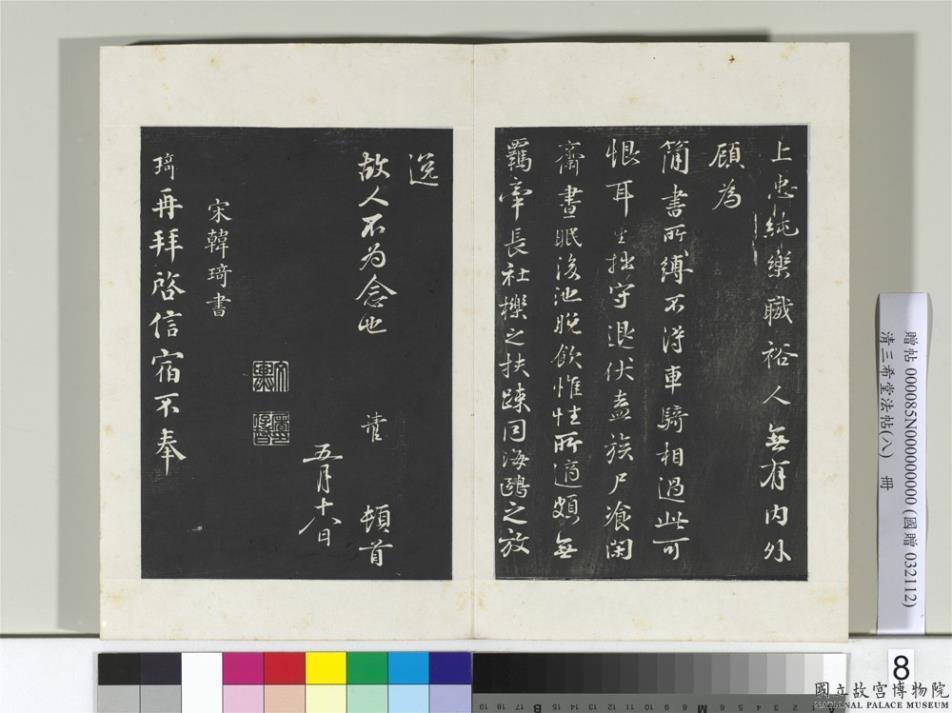 上忠純樂職裕人無有内外
顧為
簡書所縛不得車騎相過此可
恨耳生拙守退伏盍族尸飡閑
齋晝眠後池晚飲惟性所適頗無
羈牽長社櫟之扶踈同海鷗之放
逸
故人不為念也 頓首
五月十八日
宋韓琦書
琦再拜啓信宿不奉
贈帖 000085N000000000 (國贈 032112)
清三希堂法帖(八) 冊
8
國立故宮博物院
NATIONAL PALACE MUSEUM